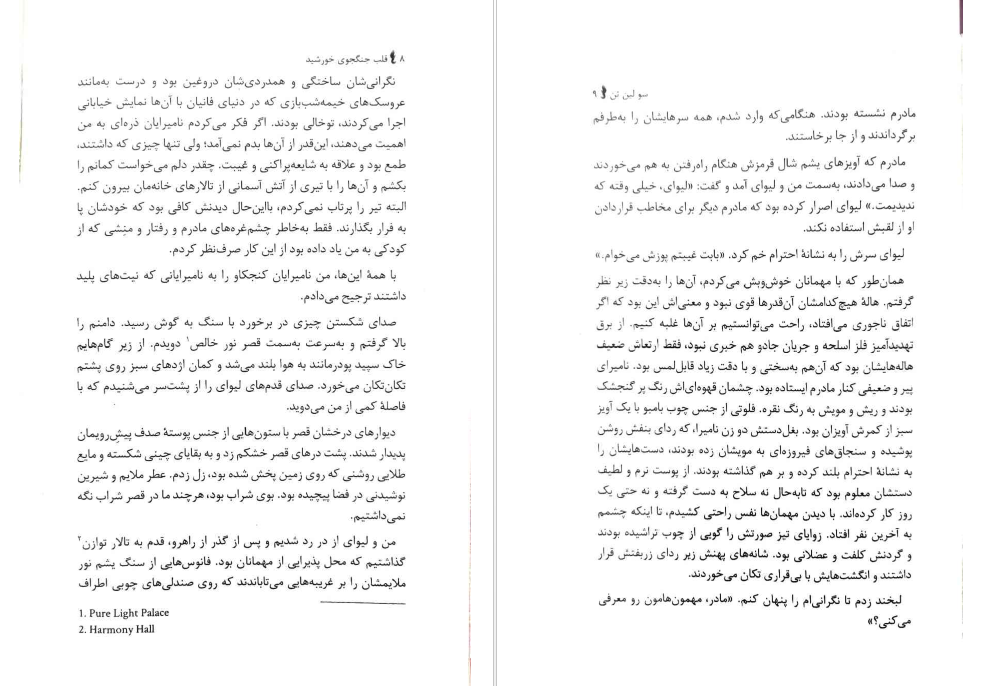 ۸ قلب جنگجوی خورشید
نگرانی‌شان ساختگی و همدردی‌شان دروغین بود و درست به‌مانند
عروسک‌های خیمه‌شب‌بازی که در دنیای فانیان با آن‌ها نمایش خیابانی
اجرا می‌کردند، توخالی بودند. اگر فکر می‌کردم نامیرایان ذره‌ای به من
اهمیت می‌دهند، این‌قدر از آن‌ها بدم نمی‌آمد؛ ولی تنها چیزی که داشتند،
طمع بود و علاقه به شایعه‌پراکنی و غیبت. چقدر دلم می‌خواست کمانم را
بکشم و آن‌ها را با تیری از آتش آسمانی از تالارهای خانه‌مان بیرون کنم.
البته تیر را پرتاب نمی‌کردم، بااین‌حال دیدنش کافی بود که خودشان پا
به فرار بگذارند. فقط به‌خاطر چشم‌غره‌های مادرم و رفتار و منِشی که از
کودکی به من یاد داده بود از این کار صرف‌نظر کردم.
با همهٔ این‌ها، من نامیرایان کنجکاو را به نامیرایانی که نیت‌های پلید
داشتند ترجیح می‌دادم.
صدای شکستن چیزی در برخورد با سنگ به گوش رسید. دامنم را
بالا گرفتم و به‌سرعت به‌سمت قصر نور خالص۱ دویدم. از زیر گام‌هایم
خاک سپید پودرمانند به هوا بلند می‌شد و کمان اژدهای سبز روی پشتم
تکان‌تکان می‌خورد. صدای قدم‌های لیوای را از پشت‌سر می‌شنیدم که با
فاصلهٔ کمی از من می‌دوید.
دیوارهای درخشان قصر با ستون‌هایی از جنس پوستهٔ صدف پیش‌رویمان
پدیدار شدند. پشت درهای قصر خشکم زد و به بقایای چینی شکسته و مایع
طلایی روشنی که روی زمین پخش شده بود، زل زدم. عطر ملایم و شیرین
نوشیدنی در فضا پیچیده بود. بوی شراب بود، هرچند ما در قصر شراب نگه
نمی‌داشتیم.
من و لیوای از در رد شدیم و پس از گذر از راهرو، قدم به تالار توازن۲
گذاشتیم که محل پذیرایی از مهمانان بود. فانوس‌هایی از سنگ یشم نور
ملایمشان را بر غریبه‌هایی می‌تاباندند که روی صندلی‌های چوبی اطراف
1. Pure Light Palace
2. Harmony Hall
سو لین تن ۹
مادرم نشسته بودند. هنگامی‌که وارد شدم، همه سرهایشان را به‌طرفم
برگرداندند و از جا برخاستند.
مادرم که آویزهای یشم شال قرمزش هنگام راه‌رفتن به هم می‌خوردند
و صدا می‌دادند، به‌سمت من و لیوای آمد و گفت: «لیوای، خیلی وقته که
ندیدیمت.» لیوای اصرار کرده بود که مادرم دیگر برای مخاطب قراردادن
او از لقبش استفاده نکند.
لیوای سرش را به نشانهٔ احترام خم کرد. «بابت غیبتم پوزش می‌خوام.»
همان‌طور که با مهمانان خوش‌وبش می‌کردم، آن‌ها را به‌دقت زیر نظر
گرفتم. هالهٔ هیچ‌کدامشان آن‌قدرها قوی نبود و معنی‌اش این بود که اگر
اتفاق ناجوری می‌افتاد، راحت می‌توانستیم بر آن‌ها غلبه کنیم. از برق
تهدیدآمیز فلز اسلحه و جریان جادو هم خبری نبود، فقط ارتعاش ضعیف
هاله‌هایشان بود که آن‌هم به‌سختی و با دقت زیاد قابل‌لمس بود. نامیرای
پیر و ضعیفی کنار مادرم ایستاده بود. چشمان قهوه‌ای‌اش رنگ پر گنجشک
بودند و ریش و مویش به رنگ نقره. فلوتی از جنس چوب بامبو با یک آویز
سبز از کمرش آویزان بود. بغل‌دستش دو زن نامیرا، که ردای بنفش روشن
پوشیده و سنجاق‌های فیروزه‌ای به مویشان زده بودند، دست‌هایشان را
به نشانهٔ احترام بلند کرده و بر هم گذاشته بودند. از پوست نرم و لطیف
دستشان معلوم بود که تابه‌حال نه سلاح به دست گرفته و نه حتی یک
روز کار کرده‌اند. با دیدن مهمان‌ها نفس راحتی کشیدم، تا اینکه چشمم
به آخرین نفر افتاد. زوایای تیز صورتش را گویی از چوب تراشیده بودند
و گردنش کلفت و عضلانی بود. شانه‌های پهنش زیر ردای زربفتش قرار
داشتند و انگشت‌هایش با بی‌قراری تکان می‌خوردند.
لبخند زدم تا نگرانی‌ام را پنهان کنم. «مادر، مهمون‌هامون رو معرفی
می‌کنی؟»